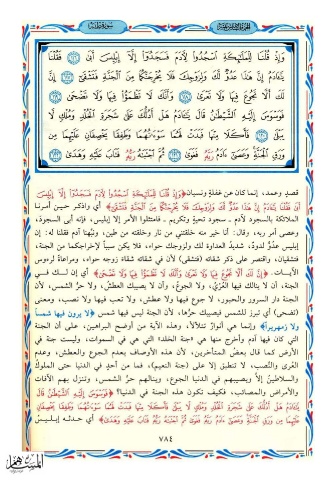 سورة طه
وَإِذْ قُلْنَا لِلْمَلَٰٓئِكَةِ ٱسْجُدُوا۟ لِءَادَمَ فَسَجَدُوٓا۟ إِلَّآ إِبْلِيسَ أَبَىٰ ١١٦ فَقُلْنَا
يَٰٓـَٔادَمُ إِنَّ هَٰذَا عَدُوٌّ لَّكَ وَلِزَوْجِكَ فَلَا يُخْرِجَنَّكُمَا مِنَ ٱلْجَنَّةِ فَتَشْقَىٰٓ ١١٧ إِنَّ
لَكَ أَلَّا تَجُوعَ فِيهَا وَلَا تَعْرَىٰ ١١٨ وَأَنَّكَ لَا تَظْمَؤُا۟ فِيهَا وَلَا تَضْحَىٰ ١١٩
فَوَسْوَسَ إِلَيْهِ ٱلشَّيْطَٰنُ قَالَ يَٰٓـَٔادَمُ هَلْ أَدُلُّكَ عَلَىٰ شَجَرَةِ ٱلْخُلْدِ وَمُلْكٍ لَّا
يَبْلَىٰ ١٢٠ فَأَكَلَا مِنْهَا فَبَدَتْ لَهُمَا سَوْءَٰتُهُمَا وَطَفِقَا يَخْصِفَانِ عَلَيْهِمَا مِن
وَرَقِ ٱلْجَنَّةِ وَعَصَىٰٓ ءَادَمُ رَبَّهُۥ فَغَوَىٰ ١٢١ ثُمَّ ٱجْتَبَٰهُ رَبُّهُۥ فَتَابَ عَلَيْهِ وَهَدَىٰ ١٢٢
قصدٍ وعمد، إنما كان عن غفلةٍ ونسيان ﴿وَإِذْ قُلْنَا لِلْمَلَٰٓئِكَةِ ٱسْجُدُوا۟ لِءَادَمَ فَسَجَدُوٓا۟ إِلَّآ إِبْلِيسَ
أَبَىٰ فَقُلْنَا يَٰٓـَٔادَمُ إِنَّ هَٰذَا عَدُوٌّ لَّكَ وَلِزَوْجِكَ فَلَا يُخْرِجَنَّكُمَا مِنَ ٱلْجَنَّةِ فَتَشْقَىٰٓ﴾ أي واذكر حين أمرنا
الملائكة بالسجود لآدم ـ سجود تحيةٍ وتكريم ـ فامتثلوا الأمر إلا إبليس، فإنه أبى السجود،
وعصى أمر ربه، وقال: أنا خير منه خلقتني من نار وخلقته من طين، ونبَّهنا آدم فقلنا له: إن
إبليس عدُوٌّ لدودٌ، شديدُ العداوة لك ولزوجك حواء، فلا يكن سبباً لإخراجكما من الجنة،
فتشقيان، واقتصر على ذكر شقائه ﴿فتشقى﴾ لأن في شقائه شقاءَ زوجه حواء، ومراعاةً لرءوس
الآيات. ﴿إِنَّ لَكَ أَلَّا تَجُوعَ فِيهَا وَلَا تَعْرَىٰ وَأَنَّكَ لَا تَظْمَؤُا۟ فِيهَا وَلَا تَضْحَىٰ﴾ أي إن لك في
الجنة، أن لا ينالك فيها العُرْيُ، ولا الجوعُ، وأن لا يصيبك العطشُ، ولا حرُّ الشمس، لأن
الجنة دار السرور والحبور، لا جوع فيها ولا عطش، ولا تعب فيها ولا نصب، ومعنى
﴿تضحى﴾ أي تبرز للشمس فيصيبك حرُّها، لأن الجنة ليس فيها شمس ﴿لا يرون فيها شمساً
ولا زمهريراً﴾ وإنما هي أنوارٌ تتلألأ، وهذه الآية من أوضح البراهين، على أن الجنة
التي كان فيها آدم وأُخرج منها هي «جنة الخلد» التي هي في السموات، وليست جنة في
الأرض كما قال بعضُ المتأخرين، لأن هذه الأوصاف بعدم الجوع والعطش، وعدم
العُري والنَّصب، لا تنطبق إلا على (جنة النعيم)، فما من أحدٍ في الدنيا حتى الملوكُ
والسلاطينُ إلاَّ ويصيبهم في الدنيا الجوع، وينالهم حرُّ الشمس، وتنزل بهم الآفات
والأمراض والمصائب، فكيف تكون هذه الجنة في الدنيا؟ ﴿فَوَسْوَسَ إِلَيْهِ ٱلشَّيْطَٰنُ قَالَ
يَٰٓـَٔادَمُ هَلْ أَدُلُّكَ عَلَىٰ شَجَرَةِ ٱلْخُلْدِ وَمُلْكٍ لَّا يَبْلَىٰ فَأَكَلَا مِنْهَا فَبَدَتْ لَهُمَا سَوْءَٰتُهُمَا وَطَفِقَا يَخْصِفَانِ
عَلَيْهِمَا مِن وَرَقِ ٱلْجَنَّةِ وَعَصَىٰٓ ءَادَمُ رَبَّهُۥ فَغَوَىٰ ثُمَّ ٱجْتَبَٰهُ رَبُّهُۥ فَتَابَ عَلَيْهِ وَهَدَىٰ﴾ أي حدثه إبليسُ
٧٨٤